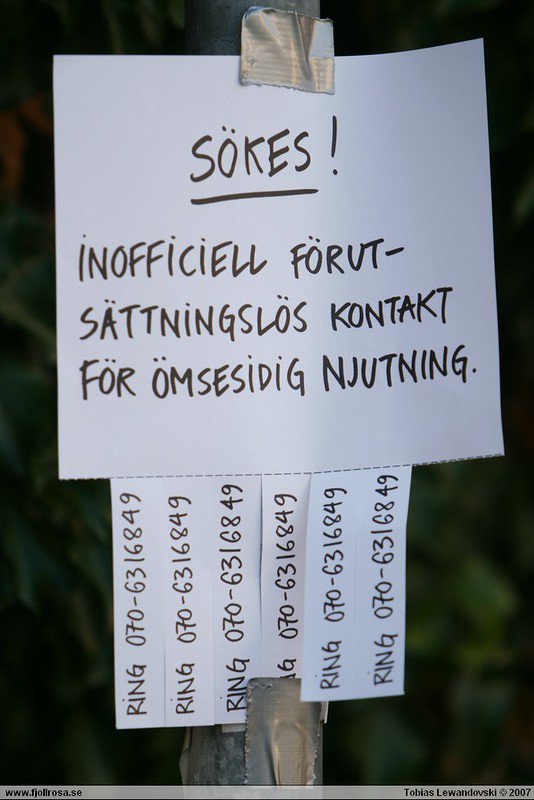 SÖKES!
INOFFICIELL FÖRUT-
SÄTTNINGSLÖS KONTAKT
FÖR ÖMSESIDIG NJUTNING.
RING 070-6316849
RING 070-6316849
RING 070-6316849
RING 070-6316849
RING 070-6316849
RING 070-6316849
www.fjollrosa.se
Tobias Lewandovski © 2007